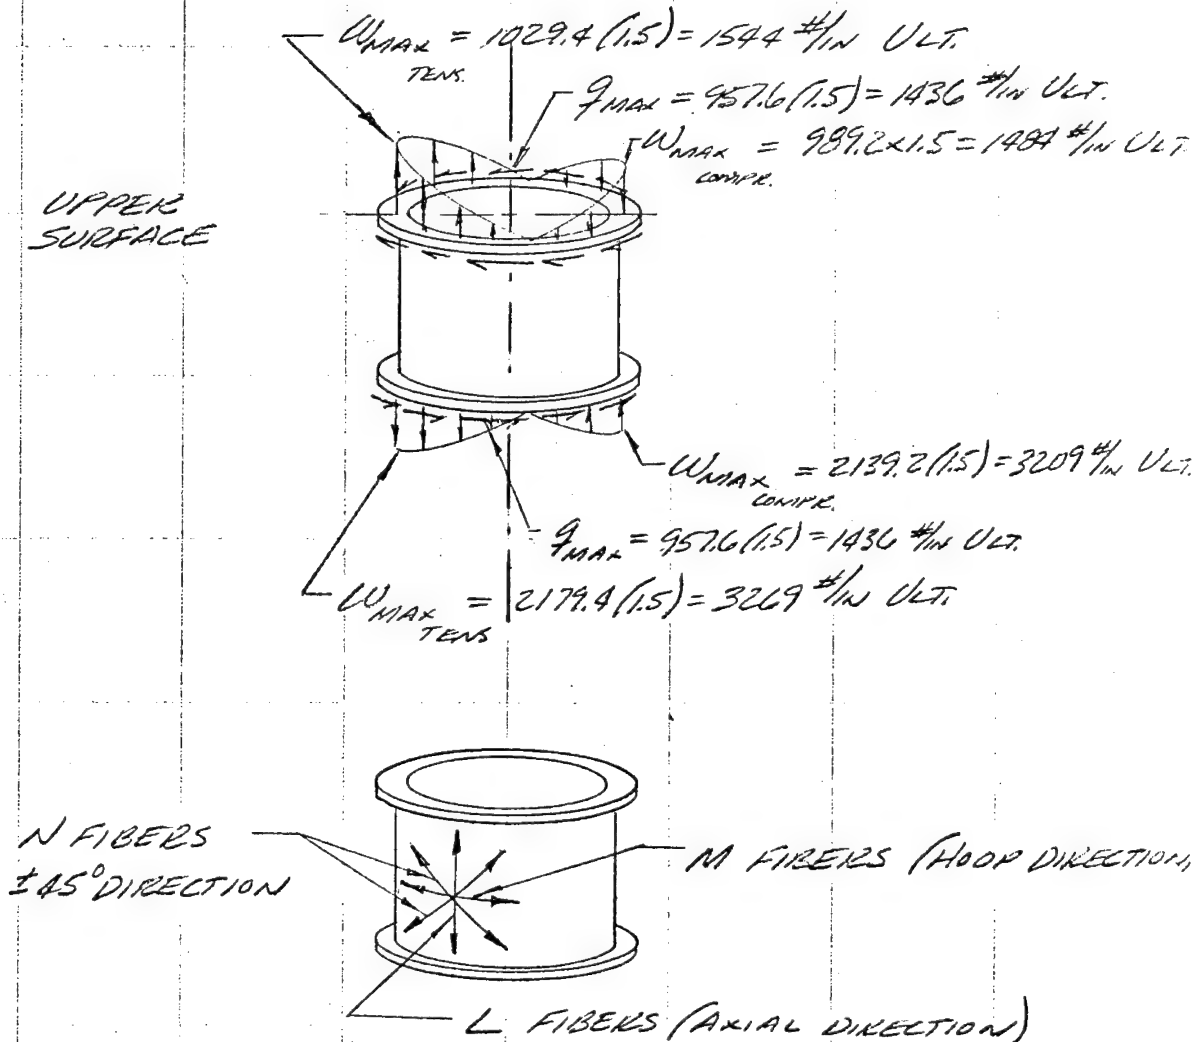 WMAX TENS. = 1029.4 (1.5) = 1544 #/IN ULT.
qMAX = 957.6 (1.5) = 1436 #/IN ULT.
WMAX COMPR. = 989.2 x 1.5 = 1484 #/IN ULT
UPPER
SURFACE
WMAX COMPR. = 2139.2 (1.5) = 3209 #/IN ULT.
qMAX = 957.6 (1.5) = 1436 #/IN ULT.
WMAX TENS = 2179.4 (1.5) = 3269 #/IN ULT.
N FIBERS
±45° DIRECTION
M FIBERS (HOOP DIRECTION)
L FIBERS (AXIAL DIRECTION)